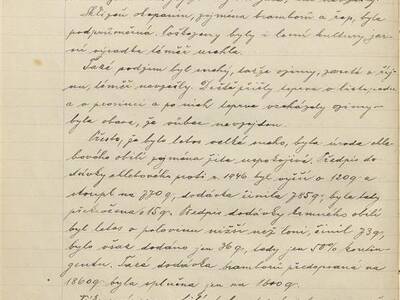 Sklizeň okopanin, zejména bramborů a řep, byla
podprůměrná. Poškozeny byly i lesní kultury, jar-
ní výsadba téměř uschla.
Také podzim byl suchý, takže ozimy, zaseté v říj-
nu, téměř nevzešly. Deště přišly teprve v listopadu
a v prosinci a po nich teprve vzcházely ozimy-
byla obava, že vůbec nevzejdou.
Přesto, že bylo letos velké sucho, byla úroda chle-
bového obilí zejména žita uspokojivá. Předpis do-
dávky chlebového proti r. 1946 byl vyšší o 120 q a
stoupl na 770 q, dodávka činila 785 q; byla tedy
překročena o 15 q. Předpis dodávky krmného obilí
byl letos o polovinu nižší než loni, činil 73 q,
bylo však dodáno jen 36 q, tedy jen 50% kontin-
gentu. Také dodávka bramborů předepsaná na
1860 q byla splněna jen na 1600 q.